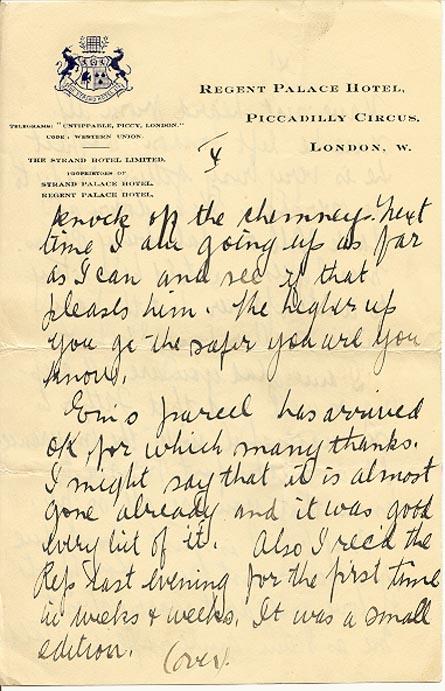 REGENT PALACE HOTEL,
PICCADILLY CIRCUS.
LONDON, W.
TELEGRAMS: "UNTIPPABLE, PICCY, LONDON."
CODE: WESTERN UNION.
THE STRAND HOTEL LIMITED.
PROPRIETORS OF
STRAND PALACE HOTEL.
REGENT PALACE HOTEL.
4
knock off the chimney. Next
time I am going up as far
as I can and see if that
pleases him. The higher up
you go the safer you are you
know.
parcel has arrived
OK for which many thanks.
I might say that it is almost
gone already and it was good
every bit of it. Also I rec'd the
Reps last evening for the first time
in weeks & weeks. It was a small
edition.
(over).